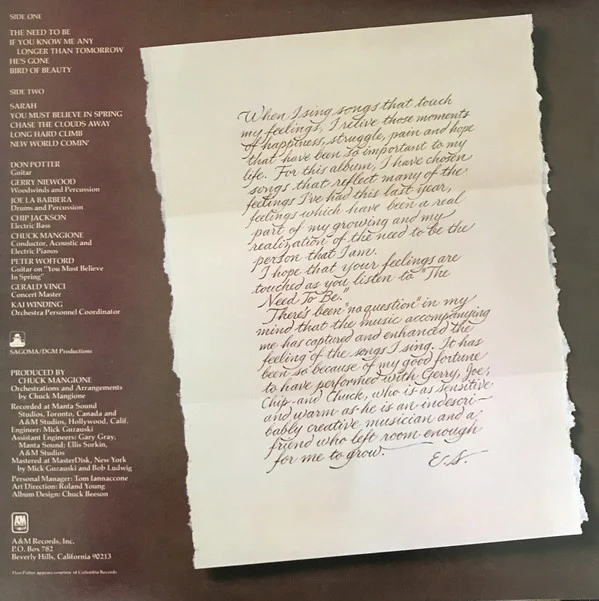 SIDE ONE
THE NEED TO BE
IF YOU KNOW ME ANY
LONGER THAN TOMORROW
HE'S GONE
BIRD OF BEAUTY
SIDE TWO
SARAH
YOU MUST BELIEVE IN SPRING
CHASE THE CLOUDS AWAY
LONG HARD CLIMB
NEW WORLD COMIN'
DON POTTER
Guitar
GERRY NIEWOOD
Woodwinds and Percussion
JOE LA BARBERA
Drums and Percussion
CHIP JACKSON
Electric Bass
CHUCK MANGIONE
Conductor, Acoustic and
Electric Pianos
PETER WOFFORD
Guitar on "You Must Believe
In Spring"
GERALD VINCI
Concert Master
KAI WINDING
Orchestra Personnel Coordinator
SAGOMA/DGM Productions
PRODUCED BY
CHUCK MANGIONE
Orchestrations and Arrangements
by Chuck Mangione
Recorded at Manta Sound
Studios, Toronto, Canada and
A&M Studios, Hollywood, Calif.
Engineer: Mick Guzauski
Assistant Engineers: Gary Gray,
Manta Sound; Ellis Sorkin,
A&M Studios
Mastered at MasterDisk, New York
by Mick Guzauski and Bob Ludwig
Personal Manager: Tom Iannaccone
Art Direction: Roland Young
Album Design: Chuck Beeson
A&M
A&M Records, Inc.
P.O. Box 782
Beverly Hills, California 90213
Don Potter appears courtesy of Columbia Records
When I sing songs that touch
my feelings, I relive those moments
of happiness, struggle, pain and hope
that have been so important to my
life. For this album, I have chosen
songs that reflect many of the
feelings I've had this last year,
feelings which have been a real
part of my growing and my
realization of the need to be the
person that I am.
I hope that your feelings are
touched as you listen to "The
Need To Be."
There's been "no question" in my
mind that the music accompanying
me has captured and enhanced the
feeling of the songs I sing. It has
been so because of my good fortune
to have performed with Gerry, Joe,
Chip and Chuck, who is as sensitive
and warm as he is an indescri-
bably creative musician and a
friend who left room enough
for me to grow. E.S.